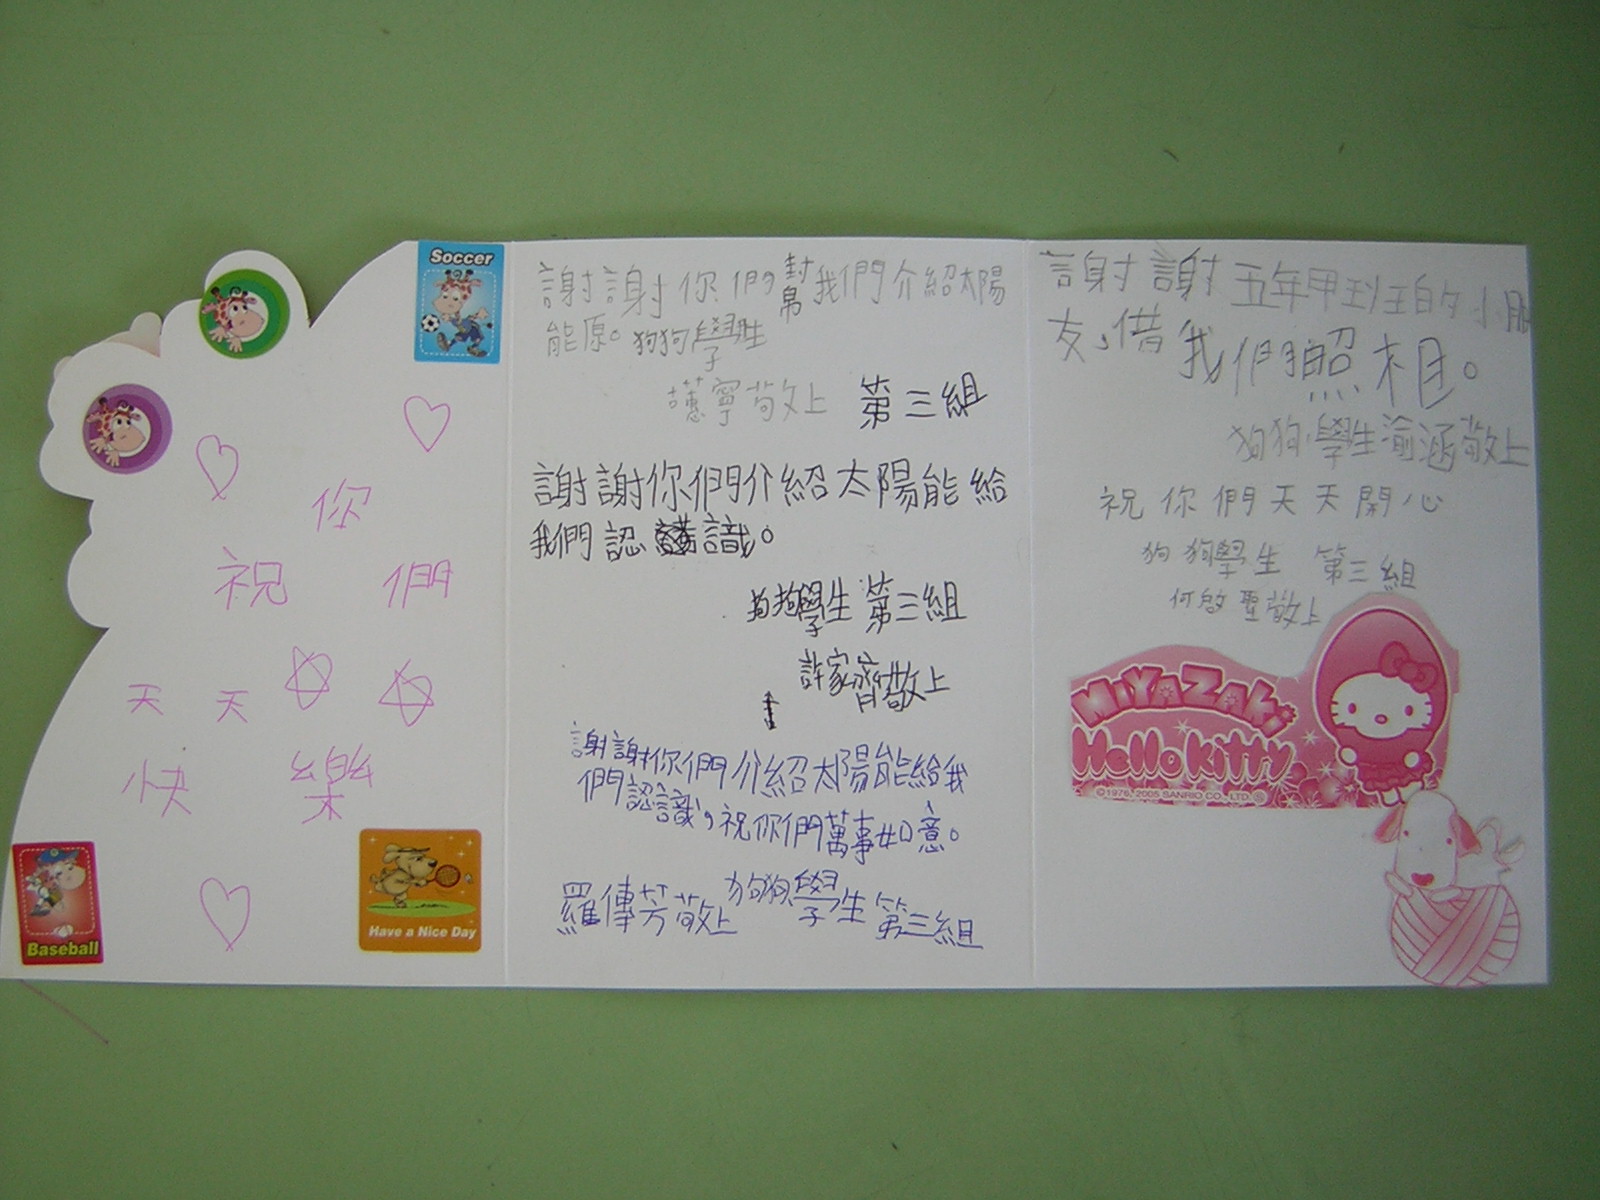 Soccer
你
祝 們
天 天
快 樂
Baseball
Have a Nice Day
謝謝你們幫我們介紹太陽
能原。狗狗學生
蕙寧敬上 第三組
謝謝你們介紹太陽能給
我們認識。
狗狗學生 第三組
許家齊敬上
謝謝你們介紹太陽能給我
們認識,祝你們萬事如意。
羅傳芳敬上 狗狗學生 第三組
謝謝五年甲班的小朋
友,借我們照相。
狗狗學生渝涵敬上
祝你們天天開心
狗狗學生 第三組
何啟聖敬上
MiYAZaKi
Hello Kitty
©1976, 2005 SANRIO CO., LTD.